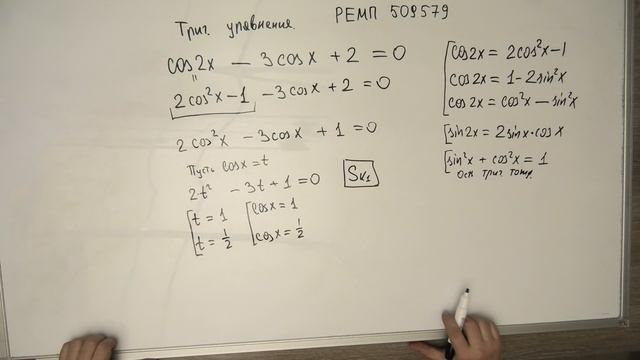 Триг. уравнения. РЕМП 509579
cos2x - 3cosx + 2 = 0
2cos²x-1 -3cosx+2=0
2cos²x -3cosx +1=0
Пусть cosx=t
2t² -3t+1=0
S к1
t=1
t=1/2
cosx=1
cosx=1/2
cos2x = 2cos²x-1
cos2x = 1-2sin²x
cos2x = cos²x-sin²x
sin2x=2sinx·cosx
sin²x + cos²x = 1
осн триг тожд